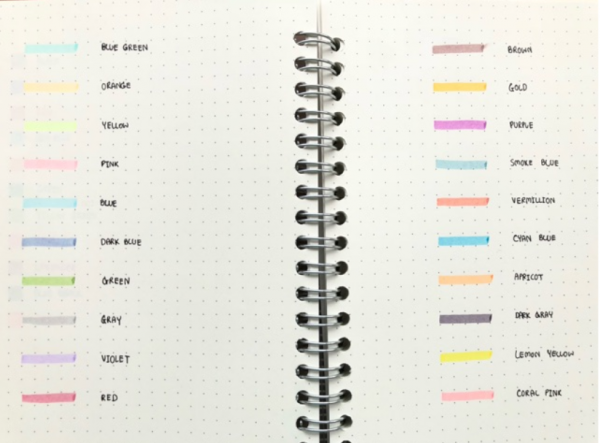 BLUE GREEN
ORANGE
YELLOW
PINK
BLUE
DARK BLUE
GREEN
GRAY
VIOLET
RED
BROWN
GOLD
PURPLE
SMOKE BLUE
VERMILLION
CYAN BLUE
APRICOT
DARK GRAY
LEMON YELLOW
CORAL PINK